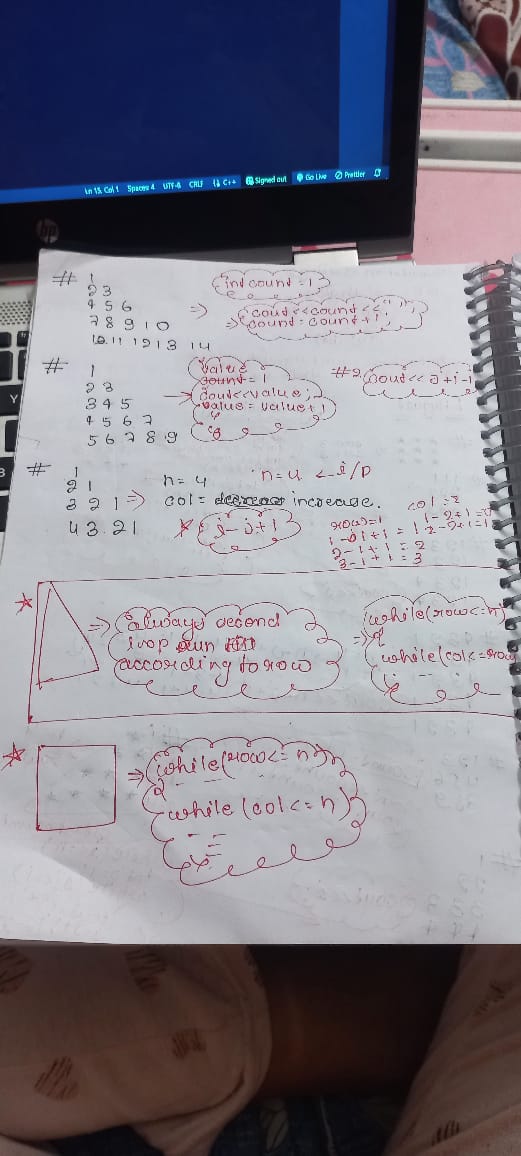 Ln 15, Col 1 Spaces: 4 UTF-8 CRLF C++ Signed out Go Live Prettier
hp
# 1
2 3
4 5 6
7 8 9 10
10 11 12 13 14
int count = 1
=> cout << count << " ";
=> count = count + 1;
# 1
2 3
3 4 5
4 5 6 7
5 6 7 8 9
value
count = 1
cout << value;
value = value + 1
}
#2 cout << j + i - 1
# 1
2 1
3 2 1 =>
4 3 2 1
n = 4 n = 4 <- i/p
col = increase.
* i - j + 1
row = 1
1 - 1 + 1 = 1
2 - 1 + 1 = 2
3 - 1 + 1 = 3
col = 2
1 - 2 + 1 = 0
2 - 2 + 1 = 1
=> always second
loop run
according to row
while(row <= n)
=> {
while(col <= row
=> while(row <= n)
{
while (col <= n)